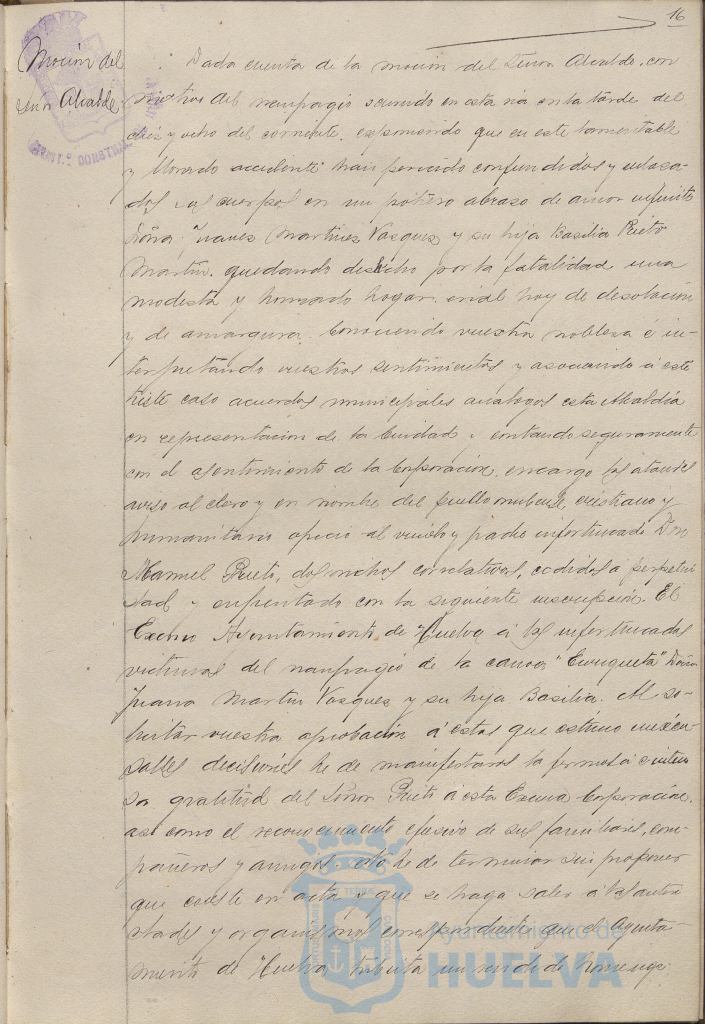 16
Moción del
Señor Alcalde
Dada cuenta de la moción del Señor Alcalde, con
motivo del naufragio ocurrido en esta ria en la tarde del
diez y ocho del corriente, exponiendo que en este lamentable
y llorado accidente han perecido confundidos y enlaza-
dos sus cuerpos en un postrero abrazo de amor infinito
Doña Juana Martinez Vasquez y su hija Basilia Prieto
Martin, quedando deshecho por la fatalidad una
modesta y honrado hogar, erial hoy de desolación
y de amargura. Conociendo vuestra nobleza é in-
terpretando vuestros sentimientos y asociando á este
triste caso acuerdos municipales analogos esta Alcaldía
en representación de la Ciudad y contando seguramente
con el asentimiento de la Corporación, encargo los ataudes
aviso al clero y en nombre del pueblo onubense, cristiano y
humanitario ofreció al viudo y padre infortunado Don
Manuel Prieto, dos nichos correlativos, cedidos á perpetui
dad y enfrentado con la siguiente inscripción. El
Excmo Ayuntamiento de Huelva á las infortunadas
victimas del naufragio de la canoa "Enriqueta" Doña
Juana Martin Vasquez y su hija Basilia. Al so-
licitar vuestra aprobación á estas que estimo inexcu-
sables decisiones he de manifestaros la fervorosa é inten
sa gratitud del Señor Prieto á esta Excma Corporación,
asi como el reconocimiento efusivo de sus familiares, com-
pañeros y amigos. No he de terminar sin proponer
que conste en acta y que se haga saber á las autori
dades y organismos correspondientes que el Ayunta-
miento de Huelva tributa un rendido homenaje
Ayuntamiento de
HUELVA